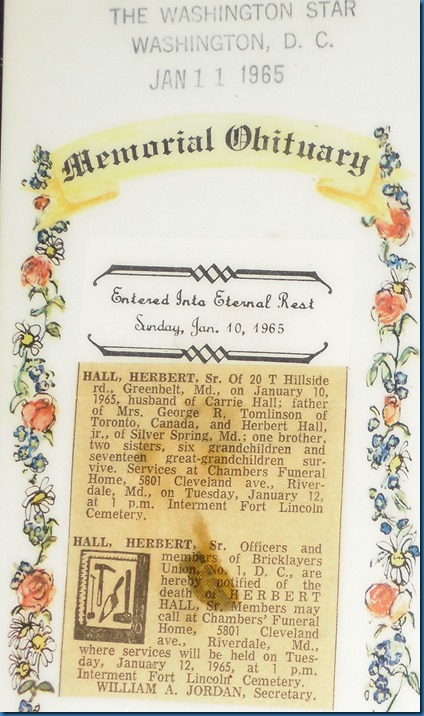 THE WASHINGTON STAR
WASHINGTON, D. C.
JAN 11 1965
Memorial Obituary
Entered Into Eternal Rest
Sunday, Jan. 10, 1965
HALL, HERBERT, Sr. Of 20 T Hillside
rd., Greenbelt, Md., on January 10,
1965, husband of Carrie Hall; father
of Mrs. George R. Tomlinson of
Toronto, Canada, and Herbert Hall,
jr., of Silver Spring, Md.; one brother,
two sisters, six grandchildren and
seventeen great-grandchildren sur-
vive. Services at Chambers Funeral
Home, 5801 Cleveland ave., River-
dale, Md., on Tuesday, January 12,
at 1 p.m. Interment Fort Lincoln
Cemetery.
HALL, HERBERT, Sr. Officers and
members of Bricklayers
Union, No. 1, D. C., are
hereby notified of the
death of HERBERT
HALL, Sr. Members may
call at Chambers' Funeral
Home, 5801 Cleveland
ave., Riverdale, Md.,
where services will be held on Tues-
day, January 12, 1965, at 1 p.m.
Interment Fort Lincoln Cemetery.
WILLIAM A. JORDAN, Secretary.